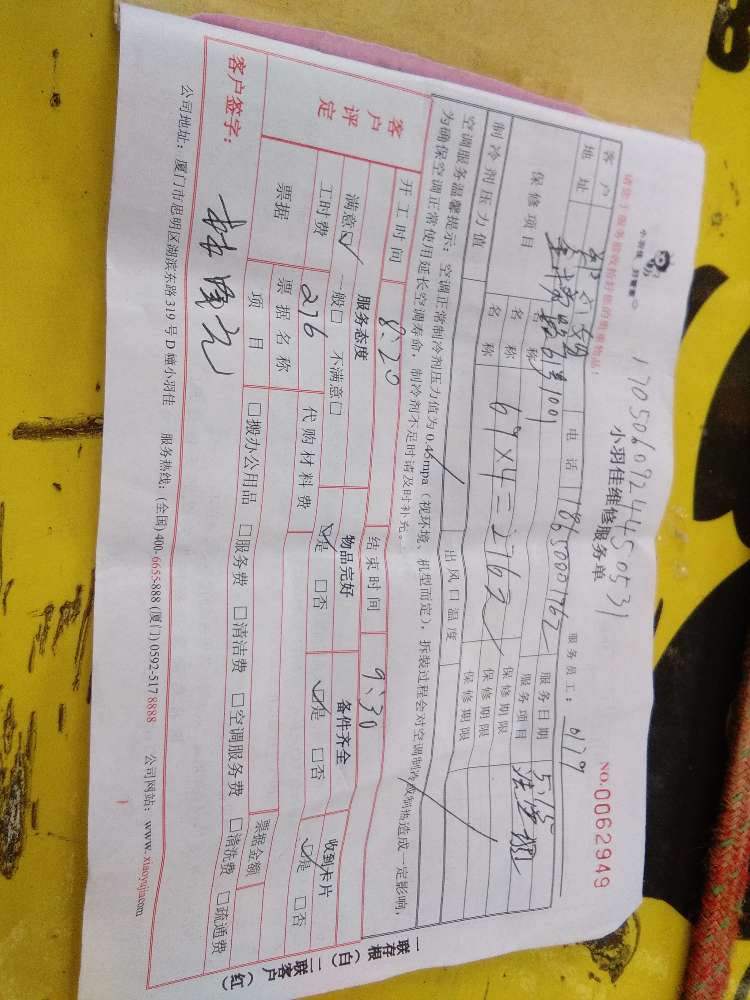 1705060924450531
小羽佳维修服务单
NO.0062949
请您于服务前收拾好您的贵重物品:
客户
电话 18650001762
服务员工: 6179
地址
6号1001
服务日期 5.15
保修项目
名称
服务项目
名称 69×4=276元
保修期限
名称
保修期限
制冷剂压力值
出风口温度
空调服务温馨提示:空调正常制冷剂压力值为0.45mpa(视环境、机型而定),拆装过程会对空调制冷或制热造成一定影响,
为确保空调正常使用延长空调寿命,制冷剂不足时请及时补充。
开工时间 8:20 结束时间 9:30
客户评定
服务态度 物品完好 备件齐全 收到卡片
满意☑ 一般□ 不满意□ ☑是 □否 ☑是 □否 ☑是 □否
工时费 276 代购材料费
票据 票据名称 票据金额
项目 □搬办公用品 □服务费 □清洁费 □空调服务费 □清洗费 □疏通费
客户签字:
公司地址:厦门市思明区湖滨东路319号D幢小羽佳 服务热线:(全国)400-6655-888(厦门)0592-5178888 公司网站:www.xiaoyujia.com
一联存根(白)二联客户(红)